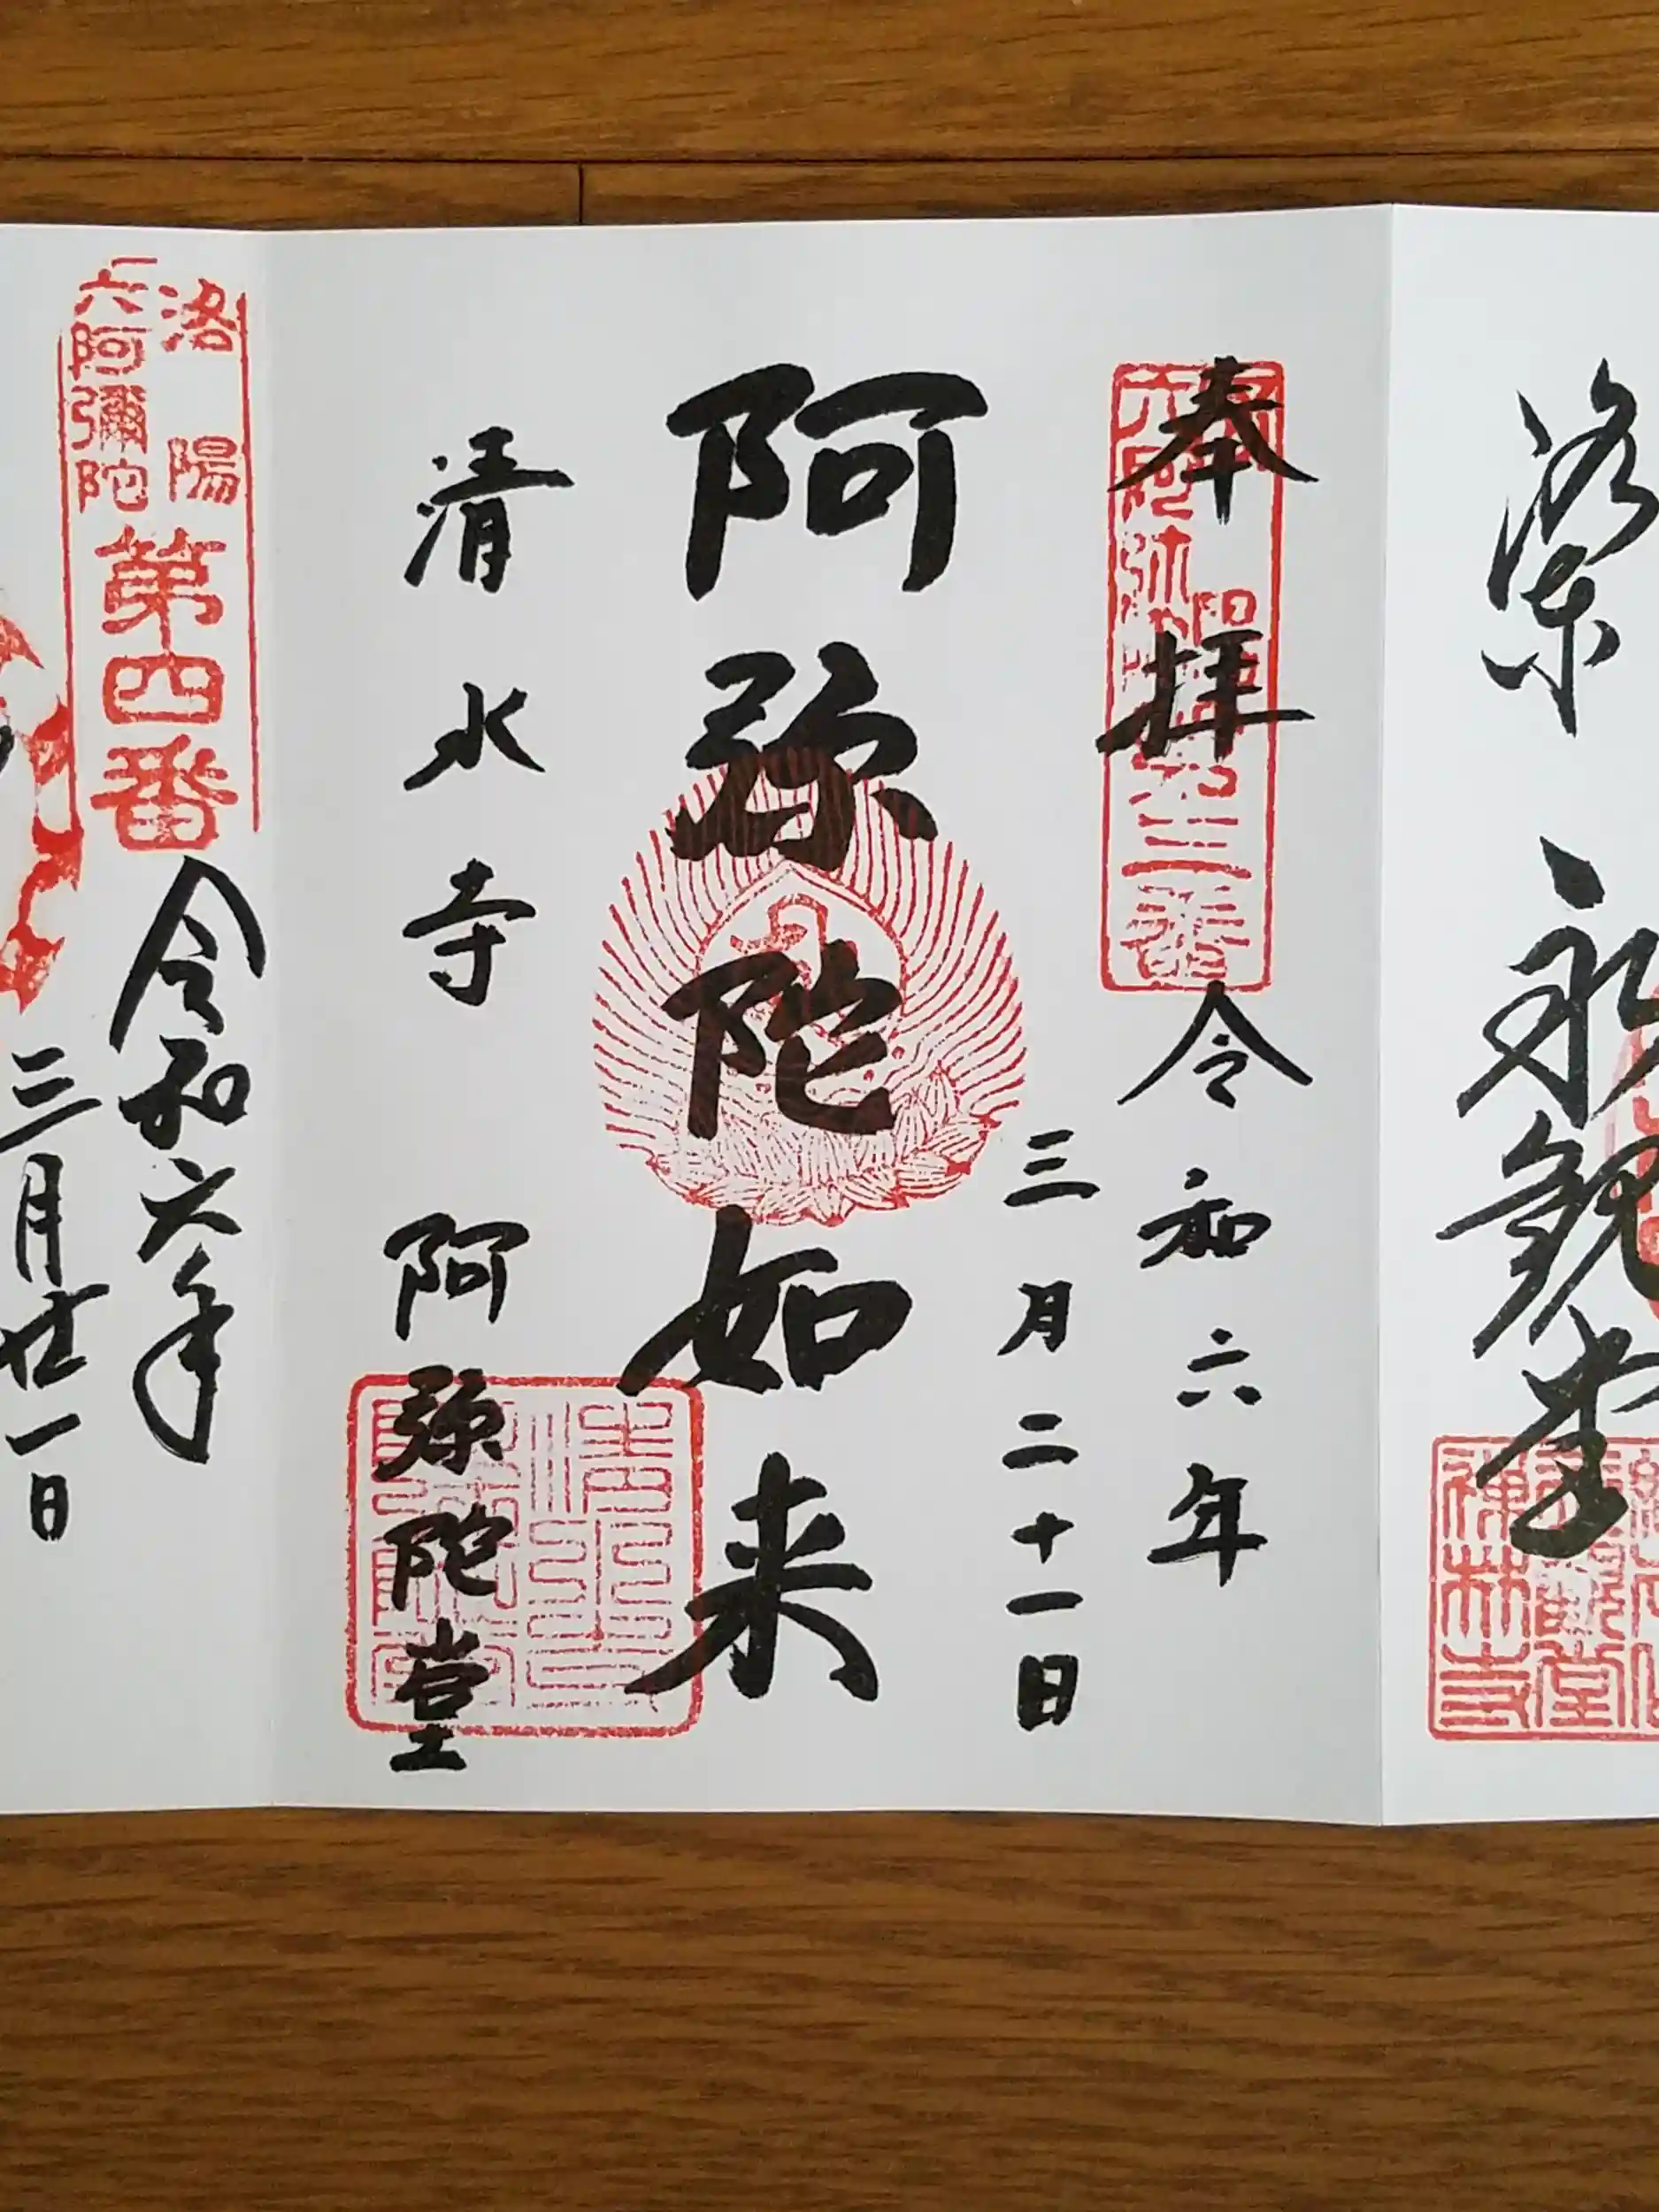 洛
永観堂
禅林寺
奉拝
令和六年
三月二十一日
阿弥陀如来
清水寺
阿弥陀堂
洛陽
六阿彌陀
第四番
令和六年
三月廿一日